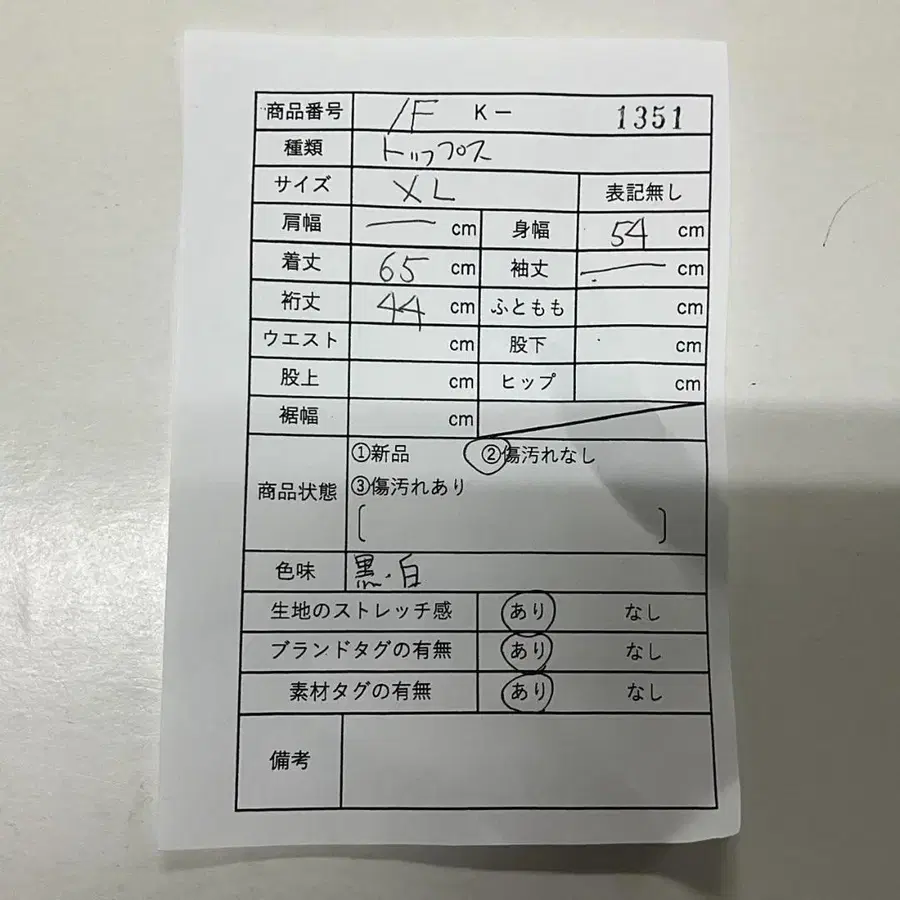 商品番号 1F K- 1351
種類 トップス
サイズ XL 表記無し
肩幅 — cm 身幅 54 cm
着丈 65 cm 袖丈 — cm
裄丈 44 cm ふともも cm
ウエスト cm 股下 cm
股上 cm ヒップ cm
裾幅 cm
商品状態 ①新品 ②傷汚れなし
③傷汚れあり
[ ]
色味 黒・白
生地のストレッチ感 あり なし
ブランドタグの有無 あり なし
素材タグの有無 あり なし
備考